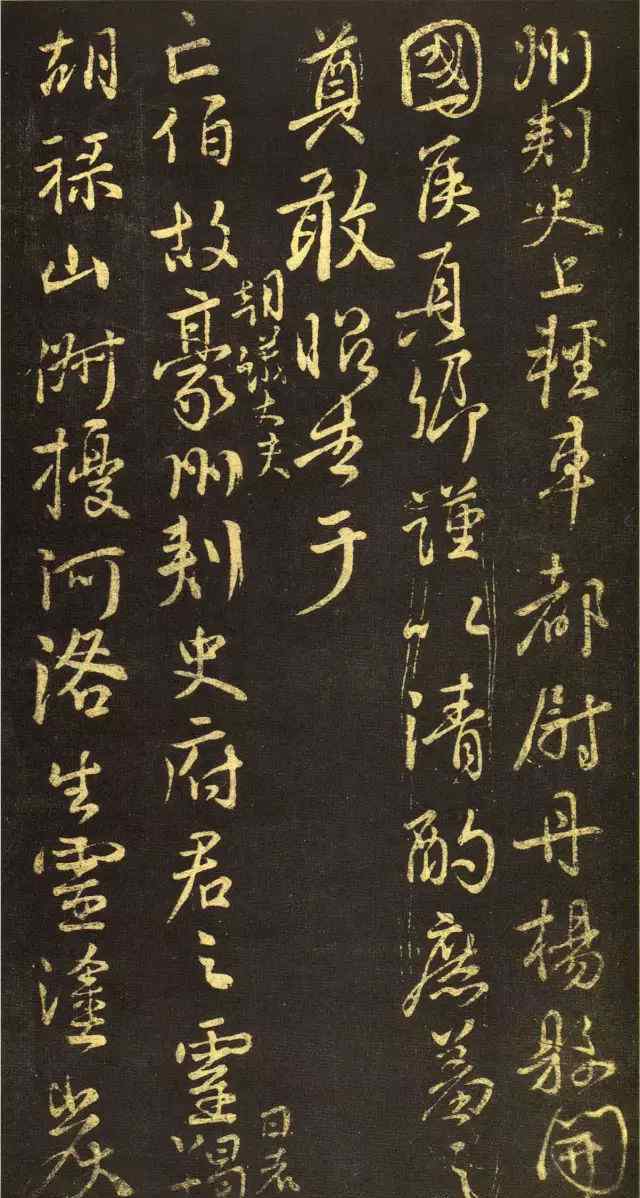 州刺史上輕車都尉丹楊縣開
國侯真卿謹以清酌庶羞之
奠敢昭告于
朝議大夫
日者
亡伯故豪州刺史府君之靈羯
胡祿山俶擾河洛生靈塗炭